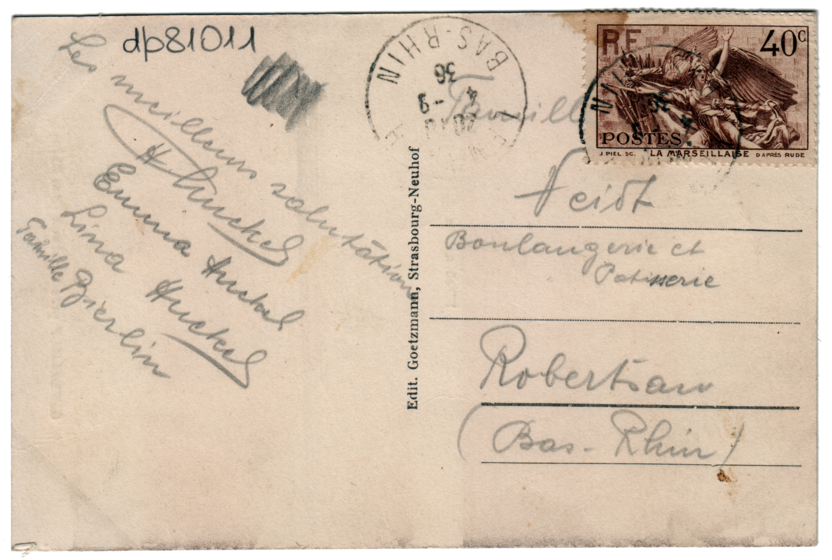 dp81011
Les meilleurs salutations
H Huckel
Emma Huckel
Lina Huckel
Famille Bierlin
Edit. Goetzmann, Strasbourg-Neuhof
BAS-RHIN
4 - 9
36
RF
40c
POSTES
J. PIEL SC. LA MARSEILLAISE D'APRÈS RUDE
Famille
Veidt
Boulangerie et
Patisserie
Robertsau
(Bas-Rhin)